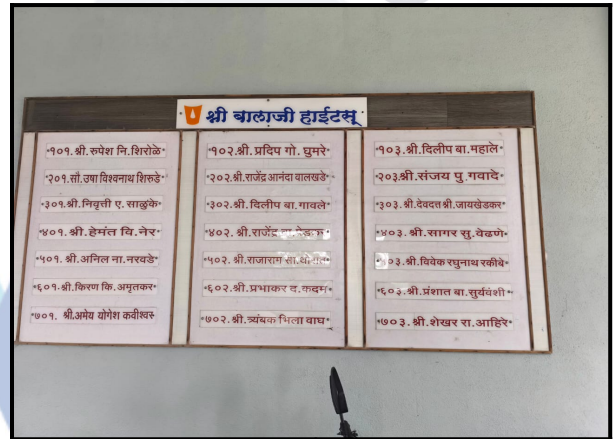 श्री बालाजी हाईटस्
१०१.श्री.रुपेश नि.शिरोळे
२०१.सौ.उषा विश्वनाथ शिरुडे
३०१.श्री.निवृत्ती ए. साळुंके
४०१.श्री.हेमंत वि.नेर
५०१.श्री.अनिल ना.नरवडे
६०१.श्री.किरण कि.अमृतकर
७०१. श्री.अमेय योगेश कवीश्वर
१०२.श्री.प्रदिप गो. घुमरे
२०२.श्री.राजेंद्र आनंदा वालखडे
३०२.श्री.दिलीप बा.गावले
४०२.श्री.राजेंद्र
५०२.श्री.राजाराम
६०२.श्री.प्रभाकर द.कदम
७०२.श्री.त्र्यंबक भिला वाघ
१०३.श्री.दिलीप बा.महाले
२०३.श्री.संजय पु.गवादे
३०३.श्री.देवदत्त श्री.जायखेडकर
४०३.श्री.सागर सु.वेढणे
५०३.श्री.विवेक रघुनाथ रकीबे
६०३.श्री.प्रंशात बा.सुर्यवंशी
७०३.श्री.शेखर रा.आहिरे